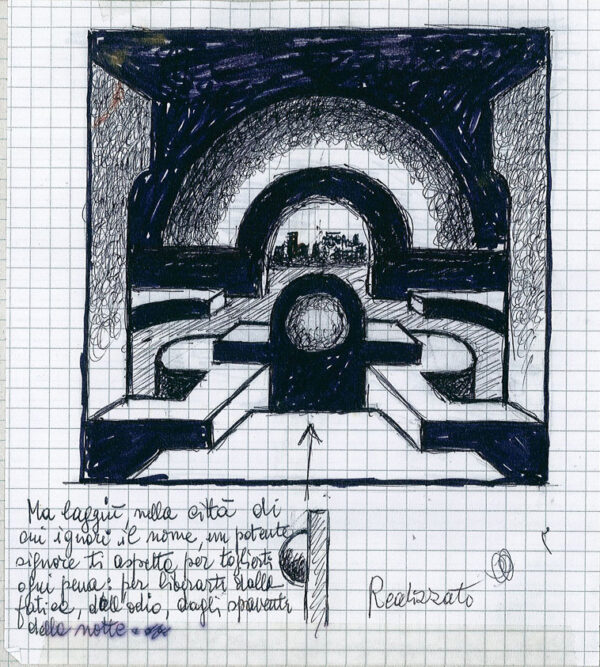 Ma laggiù nella città di
cui ignori il nome, un potente
signore ti aspetta per toglierti
ogni pena: per liberarti dalla
fatica, dall'odio dagli spaventi
della notte...
Realizzato